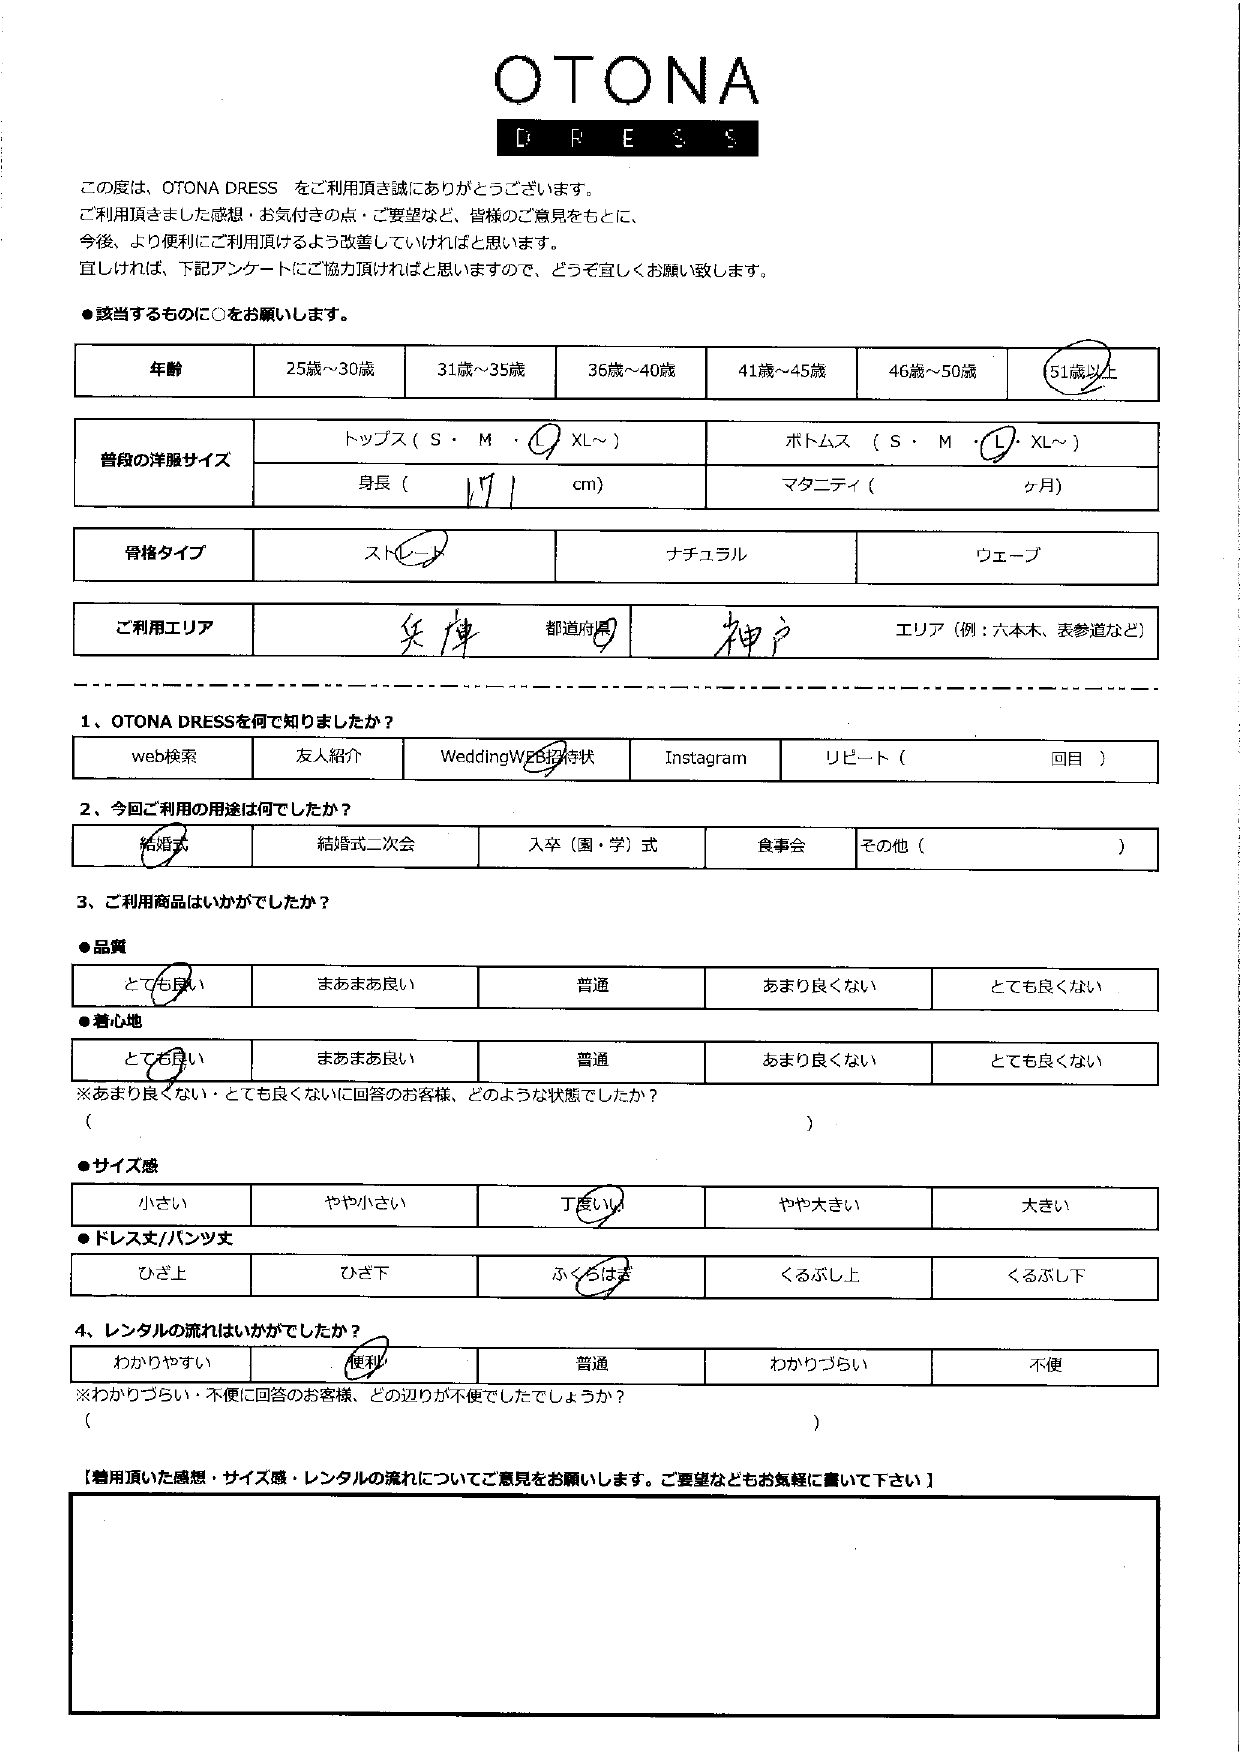 OTONA
DRESS
この度は、OTONA DRESS　をご利用頂き誠にありがとうございます。
ご利用頂きました感想・お気付きの点・ご要望など、皆様のご意見をもとに、
今後、より便利にご利用頂けるよう改善していければと思います。
宜しければ、下記アンケートにご協力頂ければと思いますので、どうぞ宜しくお願い致します。
●該当するものに○をお願いします。
年齢 25歳～30歳 31歳～35歳 36歳～40歳 41歳～45歳 46歳～50歳 51歳以上
普段の洋服サイズ トップス ( S ・ M ・ L ・ XL～ ) ボトムス ( S ・ M ・ L ・ XL～ )
身長 ( 171 cm) マタニティ ( ヶ月)
骨格タイプ ストレート ナチュラル ウェーブ
ご利用エリア 兵庫 都道府県 神戸 エリア（例：六本木、表参道など）
1、OTONA DRESSを何で知りましたか？
web検索 友人紹介 WeddingWEB招待状 Instagram リピート（ 回目 ）
2、今回ご利用の用途は何でしたか？
結婚式 結婚式二次会 入卒（園・学）式 食事会 その他（ ）
3、ご利用商品はいかがでしたか？
●品質
とても良い まあまあ良い 普通 あまり良くない とても良くない
●着心地
とても良い まあまあ良い 普通 あまり良くない とても良くない
※あまり良くない・とても良くないに回答のお客様、どのような状態でしたか？
（ ）
●サイズ感
小さい やや小さい 丁度いい やや大きい 大きい
●ドレス丈/パンツ丈
ひざ上 ひざ下 ふくらはぎ くるぶし上 くるぶし下
4、レンタルの流れはいかがでしたか？
わかりやすい 便利 普通 わかりづらい 不便
※わかりづらい・不便に回答のお客様、どの辺りが不便でしたでしょうか？
（ ）
【着用頂いた感想・サイズ感・レンタルの流れについてご意見をお願いします。ご要望などもお気軽に書いて下さい】